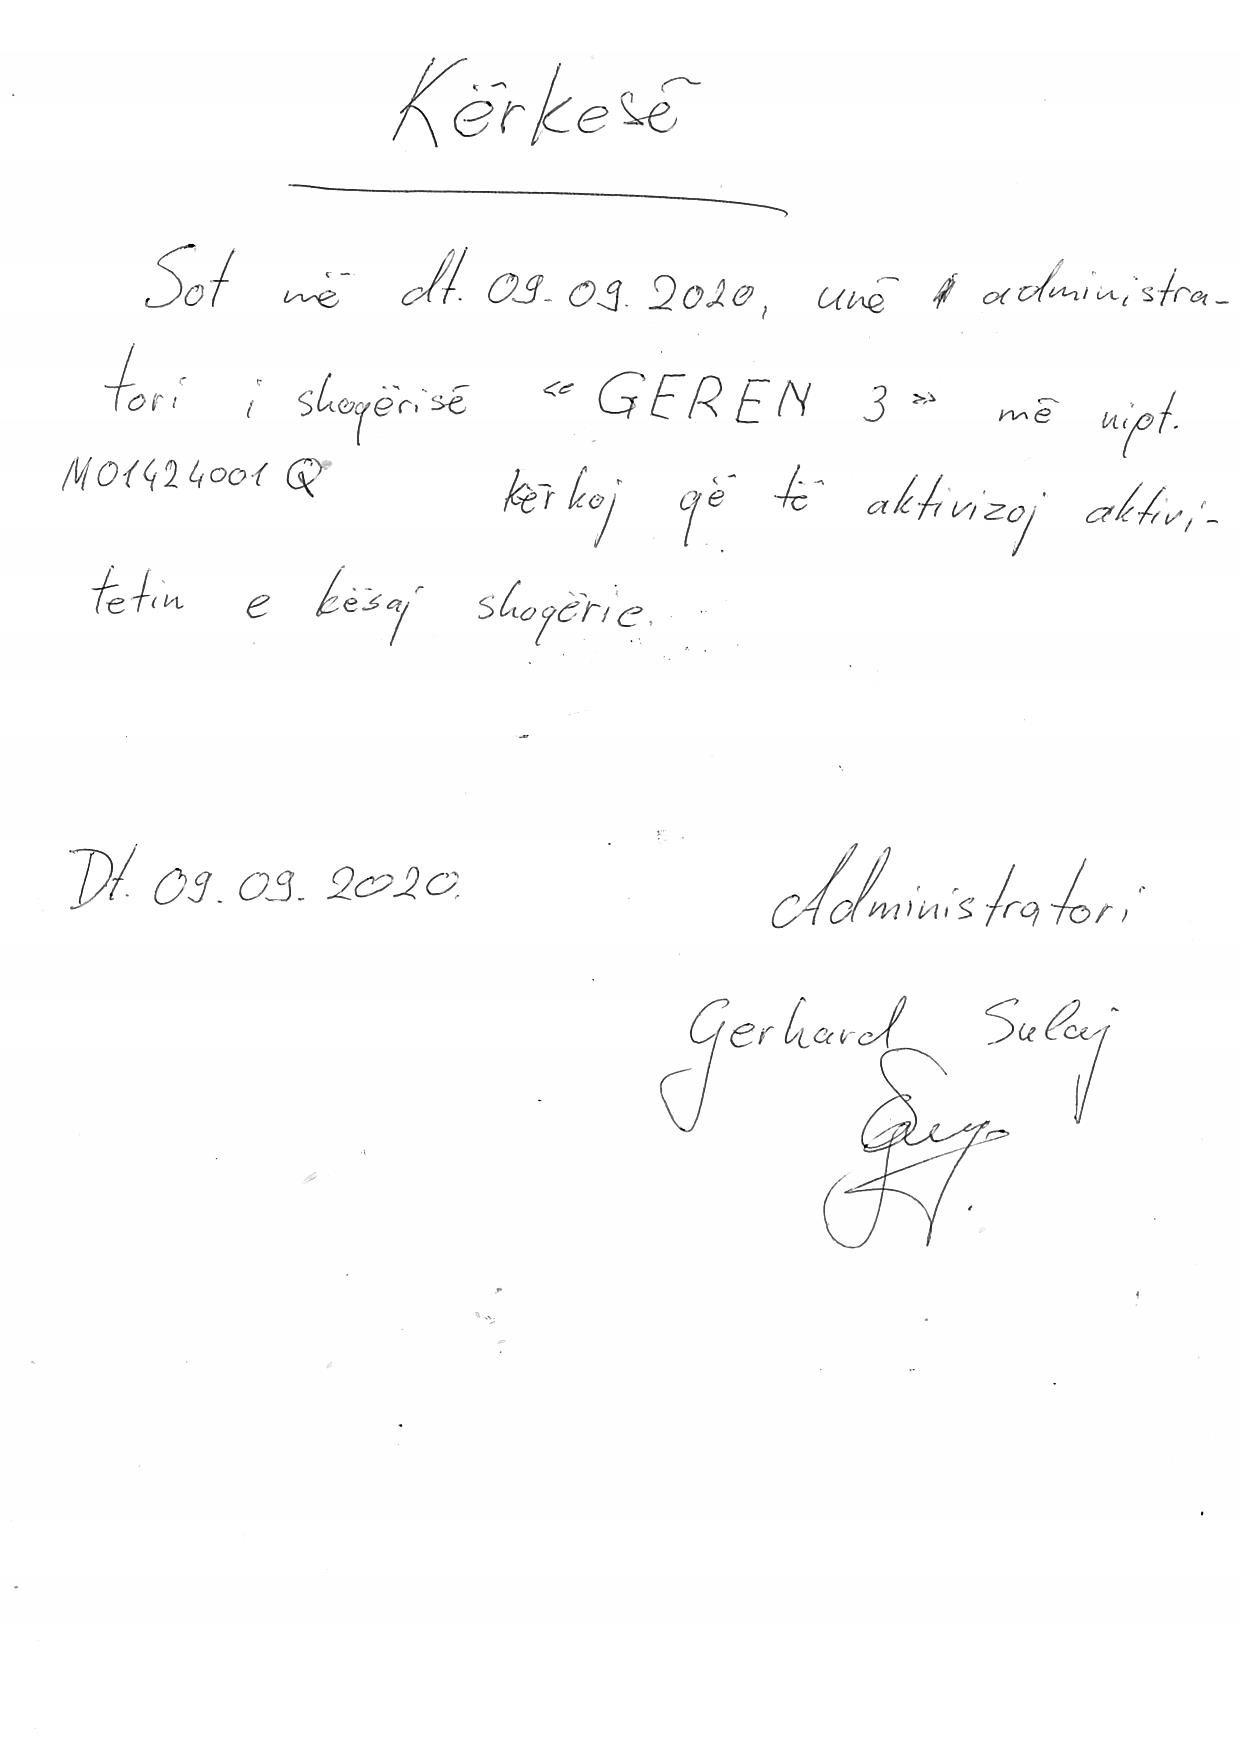 Kërkesë
Sot më dt. 09.09.2020, unë administra-
tori i shoqërisë "GEREN 3" më nipt.
M01424001Q kërkoj që të aktivizoj aktivi-
tetin e kësaj shoqërie.
Dt. 09.09.2020.
Administratori
Gerhard Sulaj